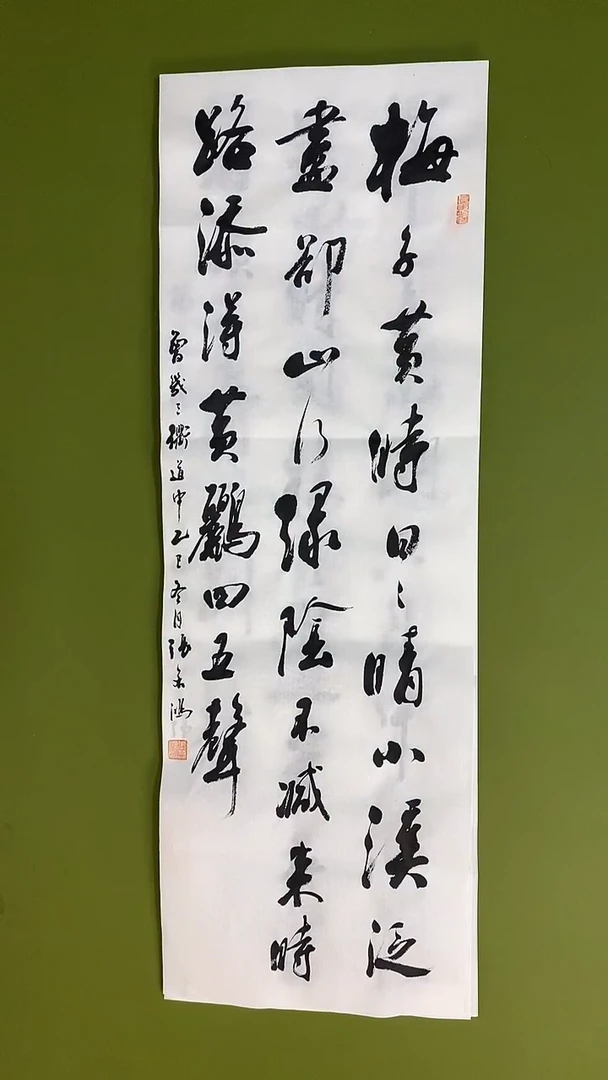 梅子黄時日〻晴小溪泛
盡卻山行緑陰不減来時
路添得黄鸝四五聲
曾幾三衢道中乙巳冬月張鴻